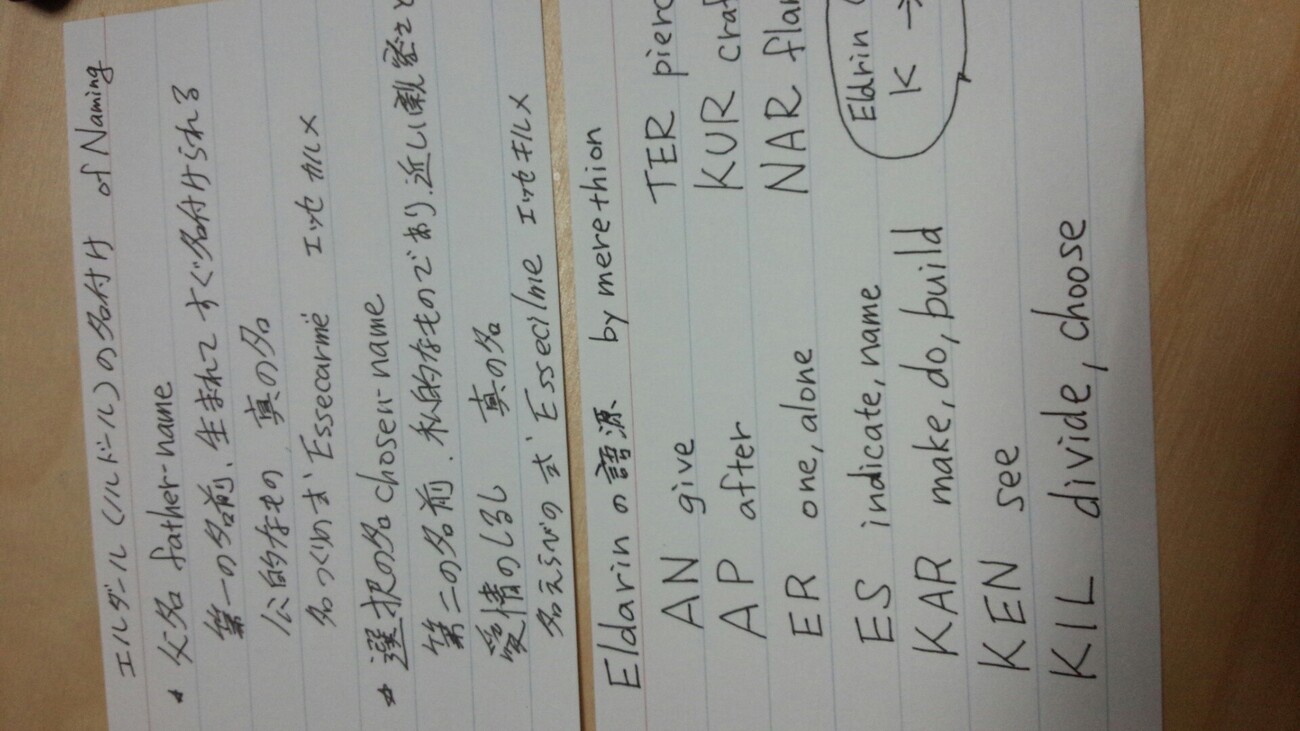 エルダール(ノルドール)の名付け of Naming
* 父名 father-name
第一の名前、生まれてすぐ名付けられる
公的なもの 真の名
名つくりの式 Essecarmë エッセカルメ
* 選択の名 chosen-name
第二の名前、私的なものであり、近しい親密さと
愛情のしるし 真の名
名えらびの式 Essecilme エッセキルメ
Eldarinの語源、 by merethion
AN give
AP after
ER one, alone
ES indicate, name
KAR make, do, build
KEN see
KIL divide, choose
TER pierc
KUR craf
NAR flam
Eldrin (
K →